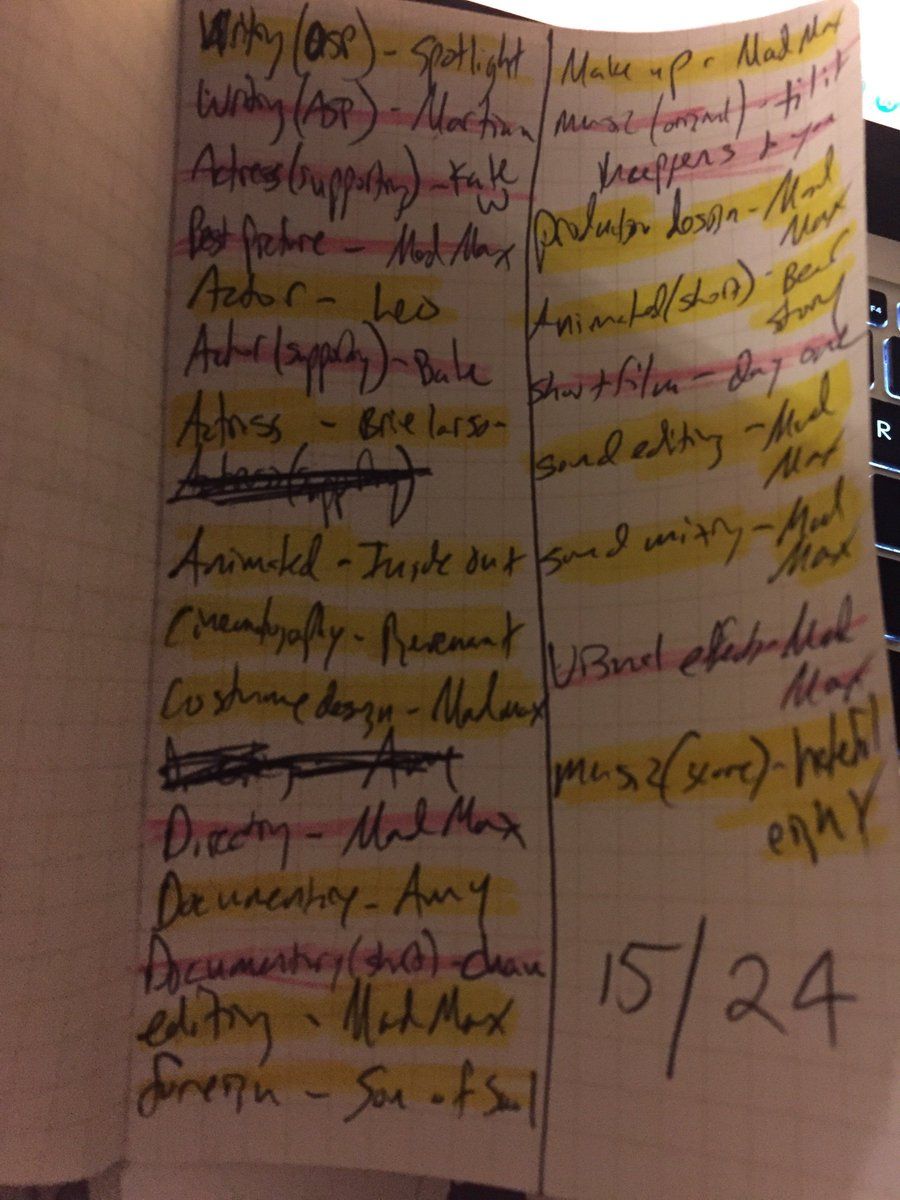 Writing (OSP) - Spotlight
Writing (ASP) - Martian
Actress (supporting) - Kate
W
Best picture - Mad Max
Actor - Leo
Actor (supporting) - Bale
Actress - Brie larson
Actress (supporting)
Animated - Inside out
Cinematography - Revenant
Costume design - Mad max
Amy
Directing - Mad Max
Documentary - Amy
Documentary (short) - chau
editing - Mad Max
foreign - Son of Saul
Make up - Mad Max
music (original) - til it
happens to you
production design - Mad
Max
Animated (short) - Bear
story
short film - Day one
sound editing - Mad
Max
sound mixing - Mad
Max
Visual effects - Mad
Max
music (score) - hateful
eight
15/24
F4
R